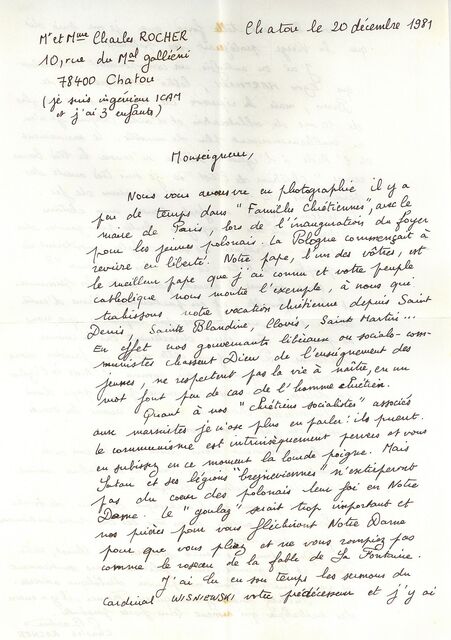 Mr et Mme Charles ROCHER
Chatou le 20 décembre 1981
10, rue du Mal galliéni
78400 Chatou
(je suis ingénieur ICAM
et j'ai 3 enfants)
Monseigneur,
Nous vous avons vu en photographie il y a
peu de temps dans "Familles Chrétiennes", avec le
maire de Paris, lors de l'inauguration du foyer
pour les jeunes polonais. La Pologne commençait à
revivre en liberté. Notre pape, l'un des vôtres, est
le meilleur pape que j'ai connu et votre peuple
catholique nous montre l'exemple, à nous qui
trahissons notre vocation chrétienne depuis Saint
Denis, Sainte Blandine, Clovis, Saint Martin...
En effet nos gouvernants libéraux ou socialo-com-
munistes chassent Dieu de l'enseignement des
jeunes, ne respectent pas la vie à naître, en un
mot font peu de cas de l'homme chrétien.
Quant à nos "chrétiens socialistes" associés
aux marxistes je n'ose plus en parler : ils puent.
Le communisme est intrinsèquement pervers et vous
en subissez en ce moment la lourde poigne. Mais
Satan et ses légions "brejneviennes" n'extirperont
pas du coeur des polonais leur foi en Notre
Dame. Le "goulag" serait trop important et
nos prières pour vous fléchiront Notre Dame
pour que vous pliez et ne vous rompiez pas
comme le roseau de la fable de La Fontaine.
J'ai lu en son temps les sermons du
Cardinal WISNIEWSKI votre prédécesseur et j'y ai